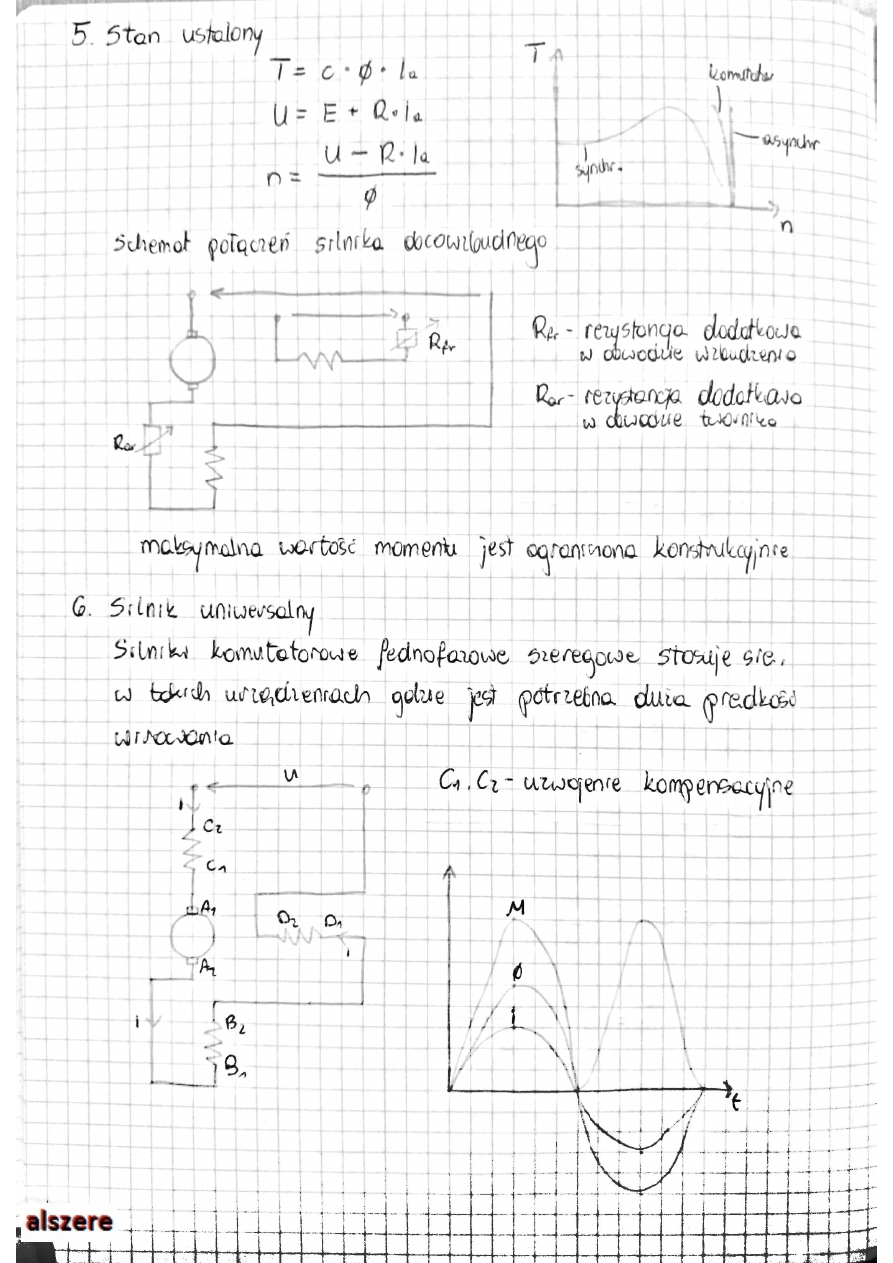 5. Stan ustalony
T = c · ϕ · Ia
U = E + R · Ia
n = (U - R · Ia) / ϕ
T
komutator
asynchr
synchr.
n
Schemat połączeń silnika obcowzbudnego
Rfr
Rar
Rfr - rezystancja dodatkowa
w obwodzie wzbudzenia
Rar - rezystancja dodatkowa
w obwodzie twornika
maksymalna wartość momentu jest ograniczona konstrukcyjnie
6. Silnik uniwersalny
Silniki komutatorowe jednofazowe szeregowe stosuje się
w takich urządzeniach gdzie jest potrzebna duża prędkość
wirowania
C1, C2 - uzwojenie kompensacyjne
u
i
C2
C1
A1
A2
D2 D1
i
i
B2
B1
M
ϕ
i
t
alszere